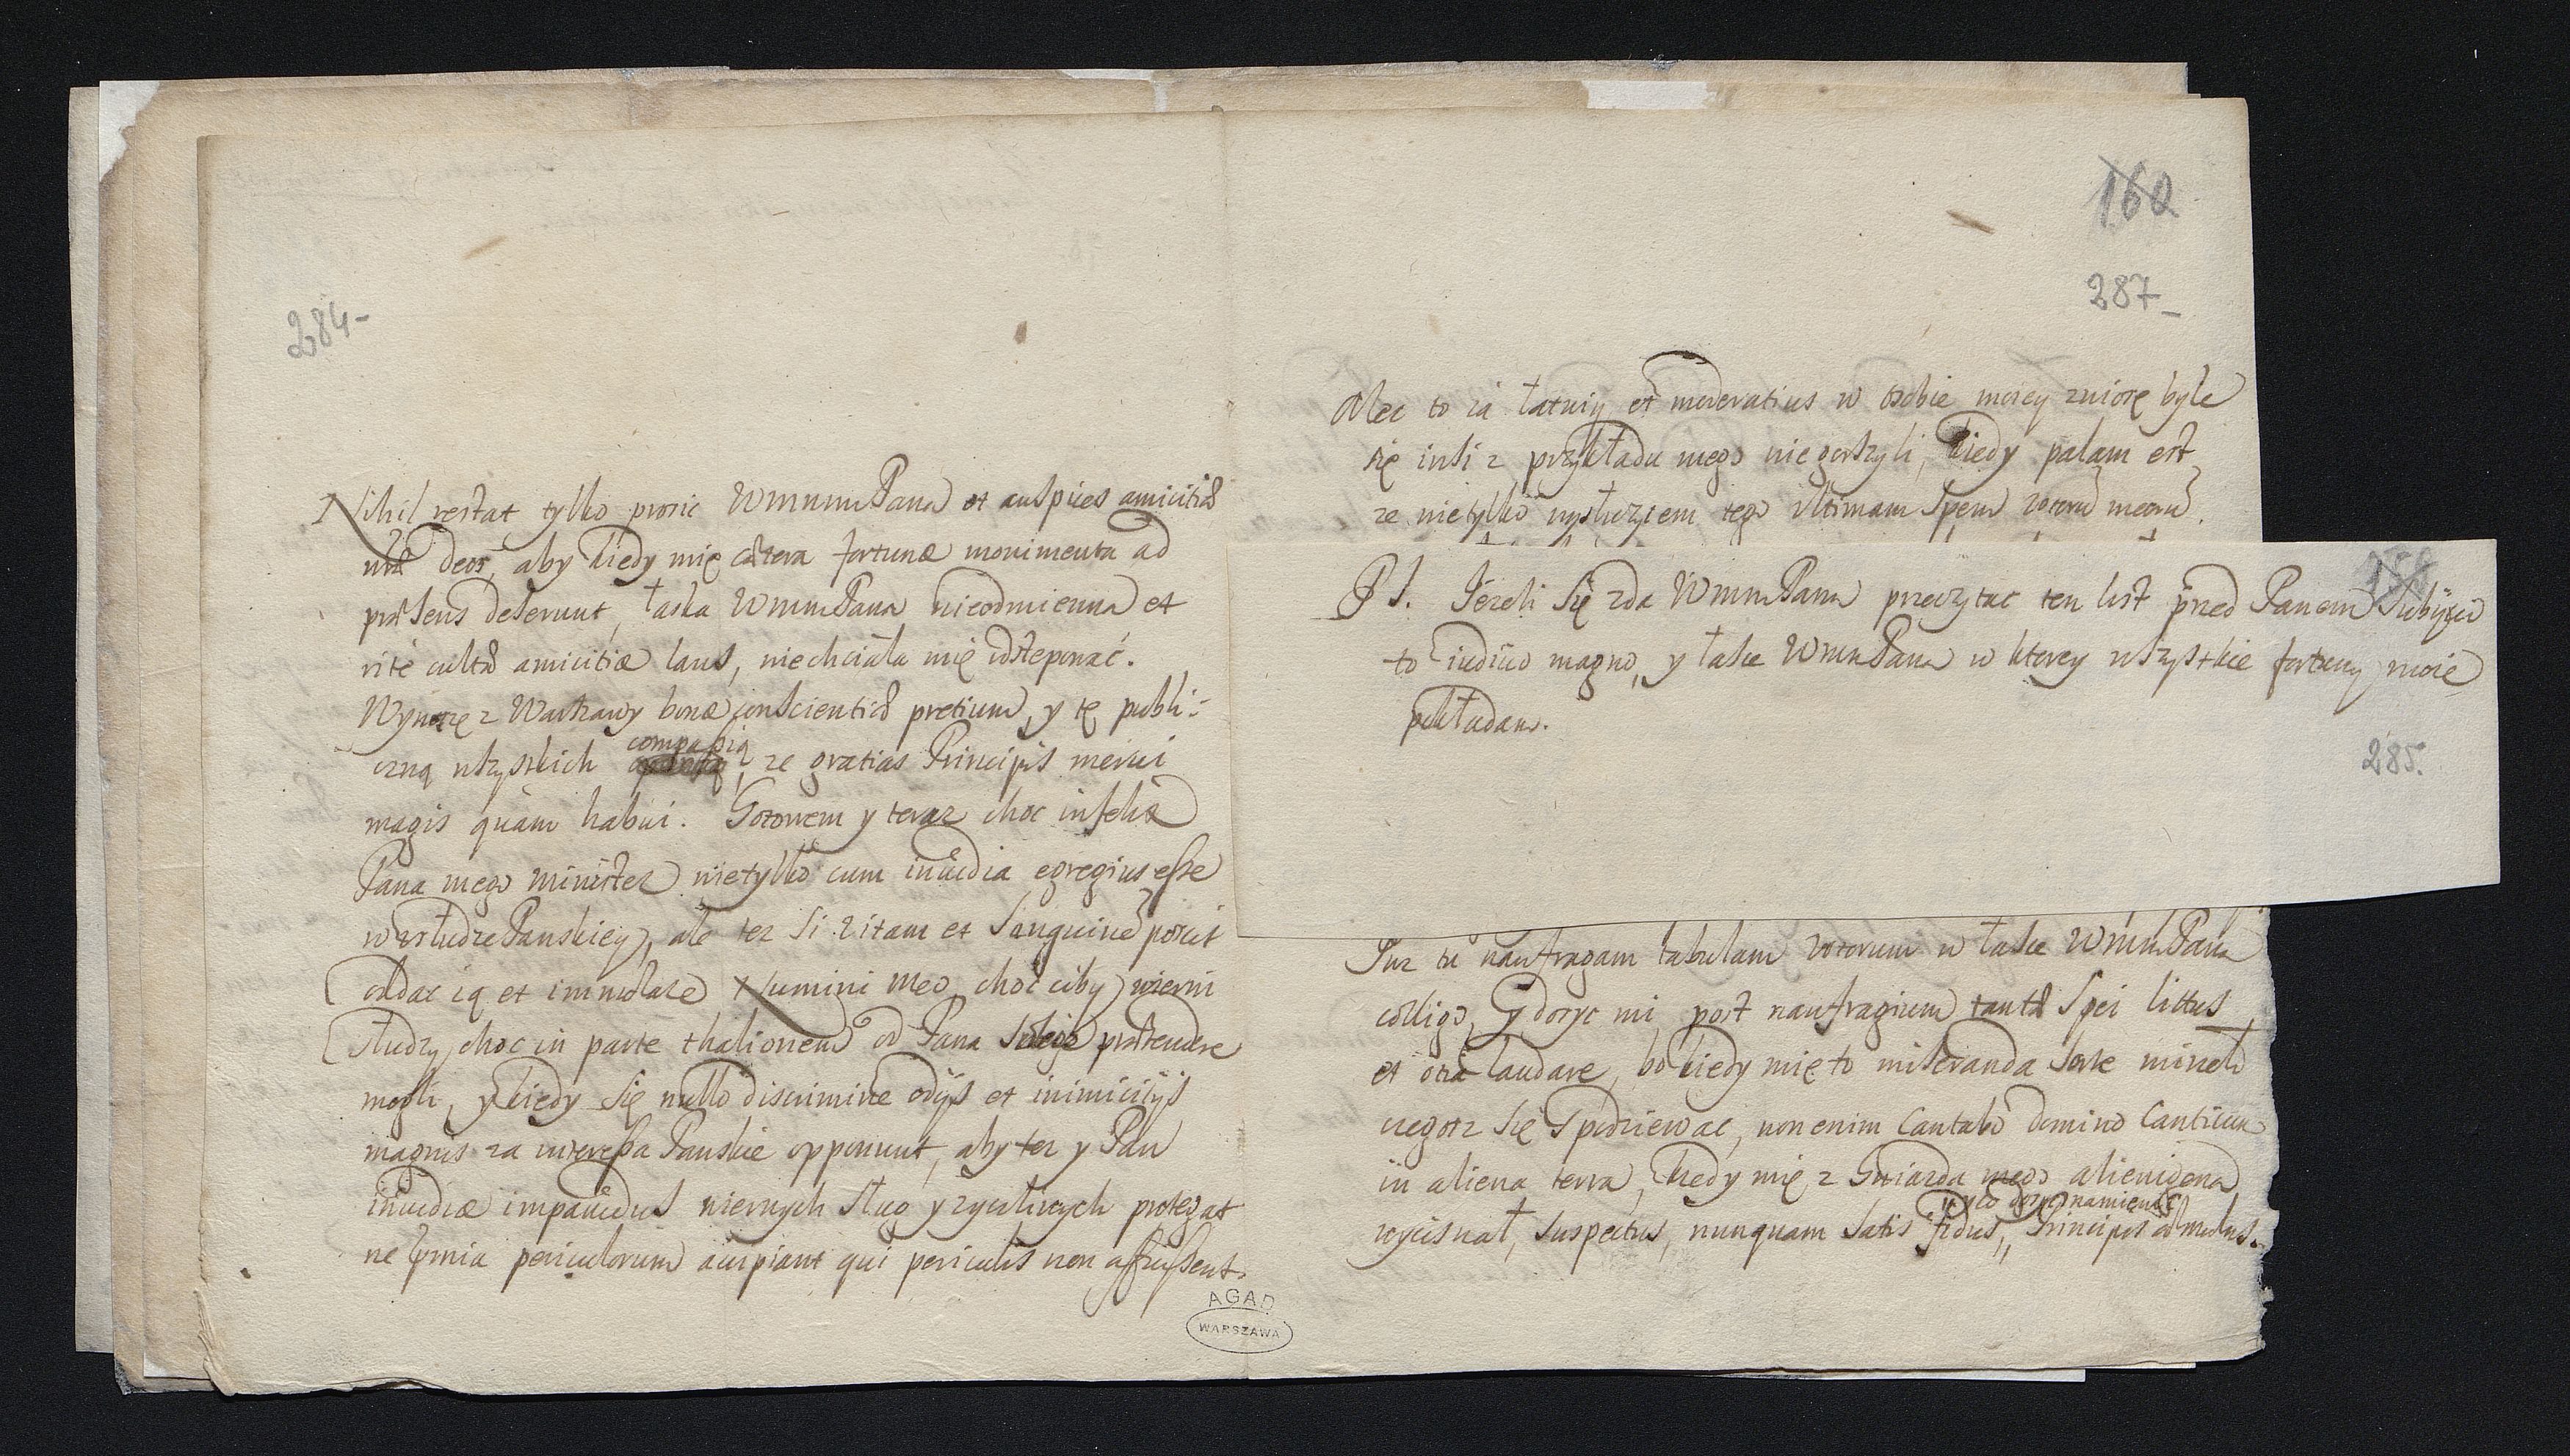 284-
Nihil restat tylko prosic WmmmPana et auspices amicitiæ
nræ deos, aby kiedy mię cætera fortunæ monimenta ad
præsens deserunt, łaska WmmPana nieodmienna et
rite cultæ amicitiæ laus, niechciała mię odstępować.
Wynoszę z Warszawy bonæ conscientiæ pretium, y tę publi-
czną wszystkich compassią, ze gratias Principis merui
magis quàm habui. Gotowem y teraz choc infelix
Pana mego minister nietylko cum inuidia egregius esse
w usłudze Panskiey, ale tez si vitam et sanguinē poscit
oddac ią et immolare Numini meo, choc ciby wierni
słudzy choc in parte thalionem od Pana swego prætendere
mogli, y kiedy się nullo discrimine odijs et inimicitijs
magnis za interessa Panskie opponunt, aby tez y Pan
inuidiæ impauidus wiernych sług y zycliwych protegat
ne præmia periculorum accipiant qui periculis non affuissent.
AGAD
WARSZAWA
160
287-
Alec to ia łatwiy et moderatius w osobie moiey zniosę byle
się insi z przykładu mego niegorszyli, kiedy palam est
ze nietylko nysłuzyłem tego vltimam spem votorū meorū.
PS. Jezeli się zda WmmPanu przeczytac ten list przed Panem subijcio
to iudicio magno, y łasce WmmPana w ktorey wszystkie fortuny moie
pokładam.
285.
Juz tu naufragam tabulam votorum w łasce WmmPana
colligo, y dozyc mi post naufragium tantæ spei littus
et ora laudare, bo kiedy mię to miseranda sorte mineło
czegosz się spodziewac, non enim Cantabo domino Canticum
in aliena terra, kiedy mię z Gniazda mego alienigena
wycisnął, suspectus, nunquam satis fidus, Principis æmulus.